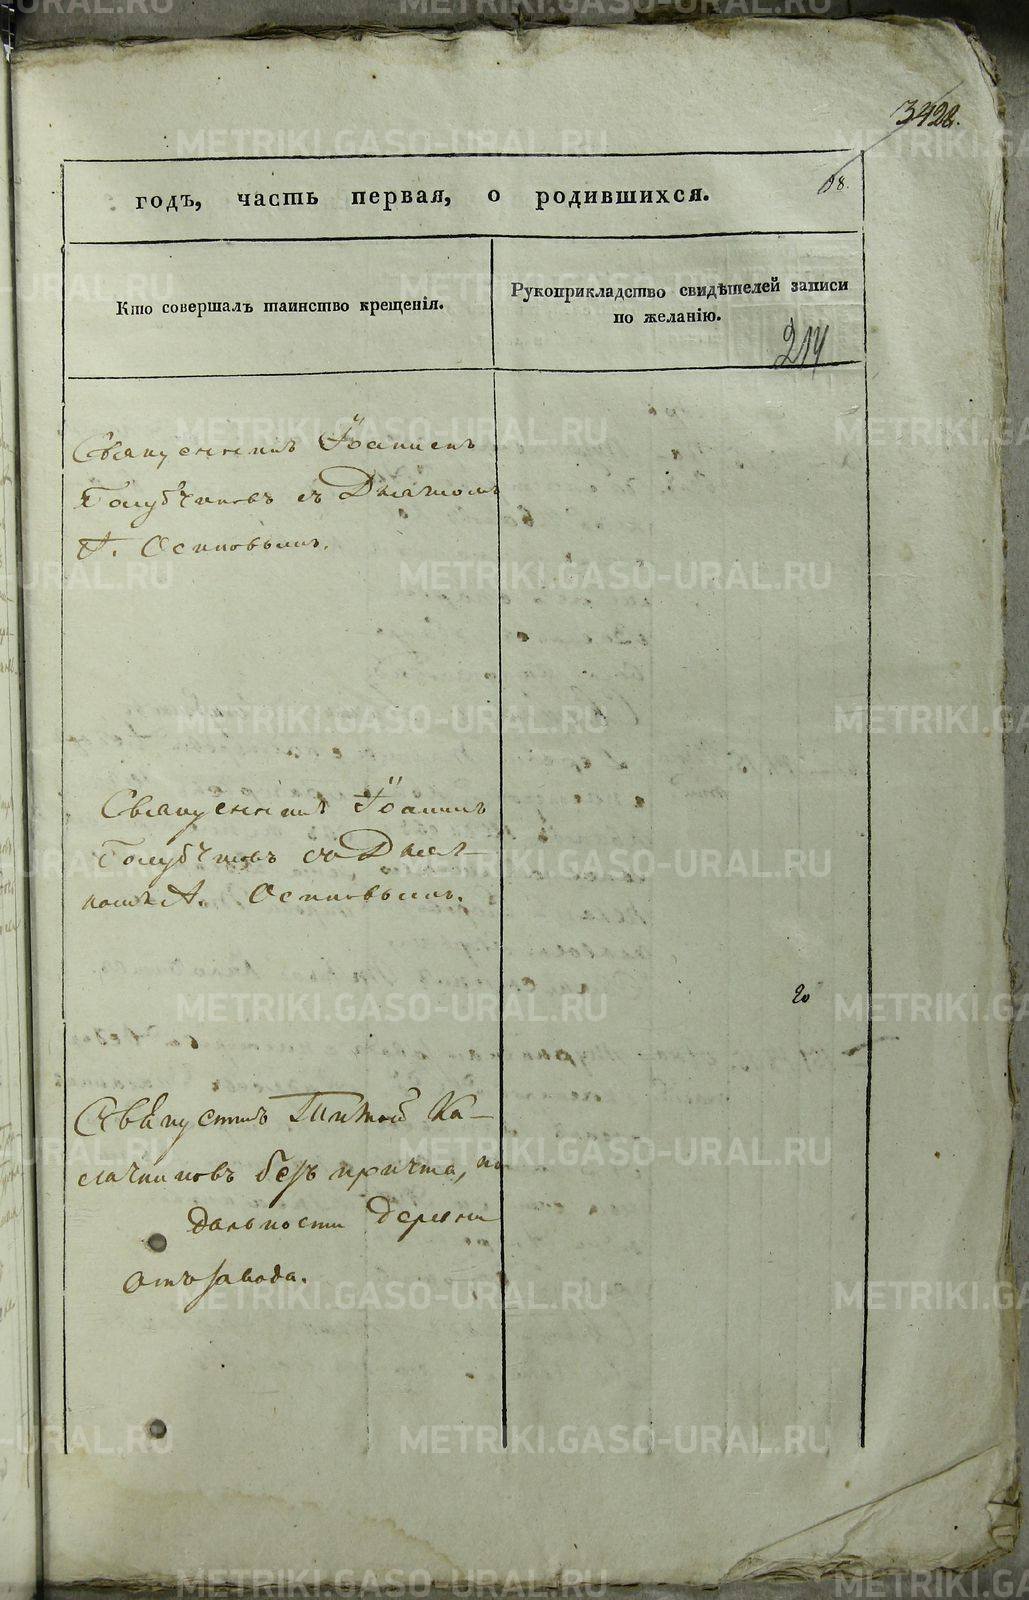 3428.
98.
годъ, часть первая, о родившихся.
Кто совершалъ таинство крещенія.
Рукоприкладство свидѣтелей записи
по желанію.
214
Священникъ Іоаннъ
Голубчиковъ съ Дьячкомъ
А. Осиповымъ.
Священникъ Іоаннъ
Голубчиковъ съ Дьяч-
комъ А. Осиповымъ.
20
Ка-
лачниковъ безъ причта, по
дальности деревни
отъ завода.
METRIKI.GASO-URAL.RU